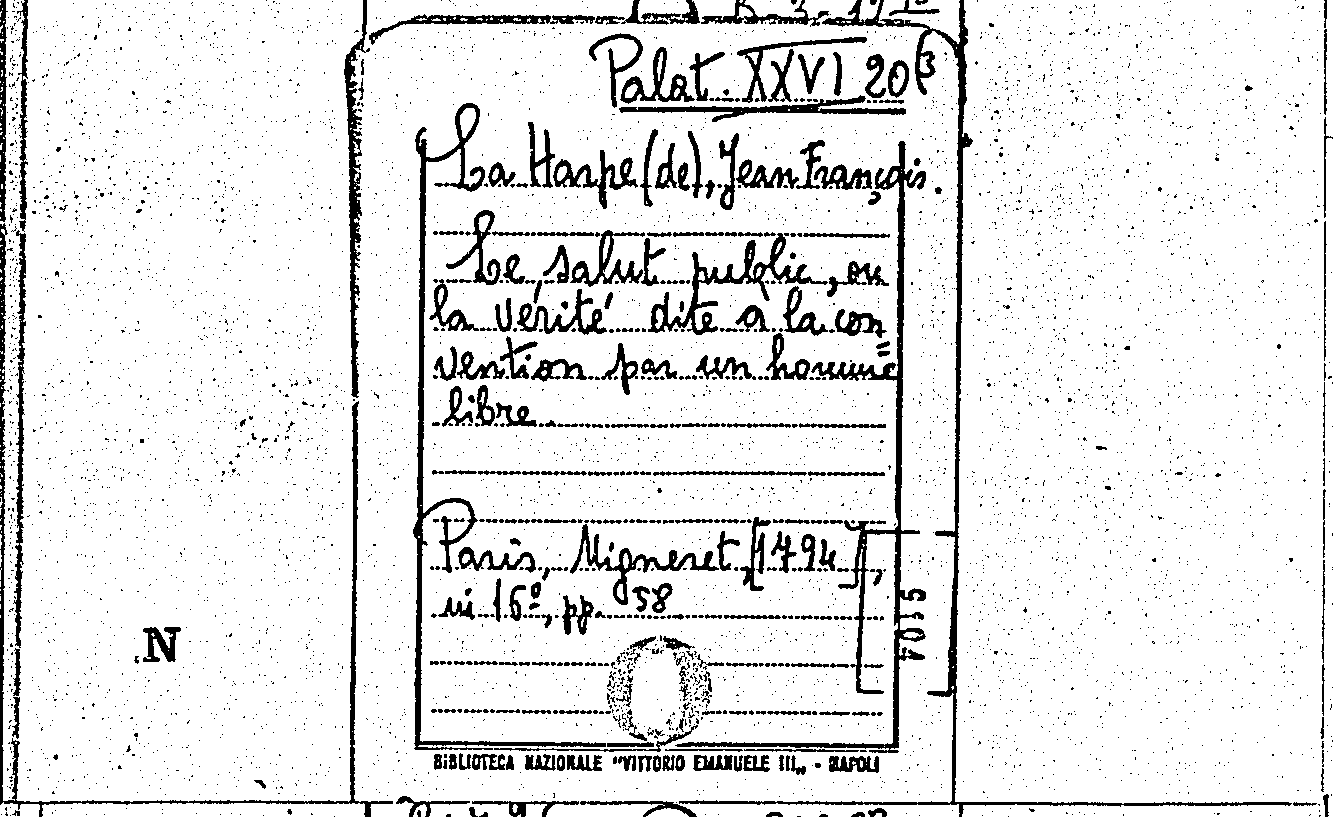 B. 3. 19
Palat. XXVI 20(3
La Harpe (de), Jean François.
Le salut public, ou
la vérité dite à la con
vention par un homme
libre.
Paris, Migneret, [1794],
in 16º, pp. 58
4015
N
BIBLIOTECA NAZIONALE "VITTORIO EMANUELE III„ - NAPOLI